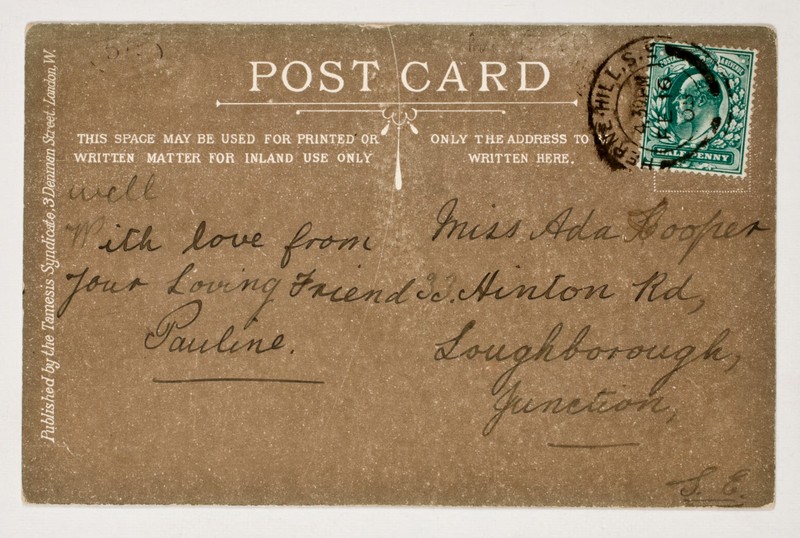 POST CARD
THIS SPACE MAY BE USED FOR PRINTED OR
WRITTEN MATTER FOR INLAND USE ONLY
ONLY THE ADDRESS TO
WRITTEN HERE.
Published by the Tamesis Syndicate, 3 Denman Street. London, W.
well
With love from
Your Loving Friend
Pauline.
Miss Ada Hooper
33. Hinton Rd,
Loughborough,
Junction,
S. E.
HALFPENNY
HILL. S.E